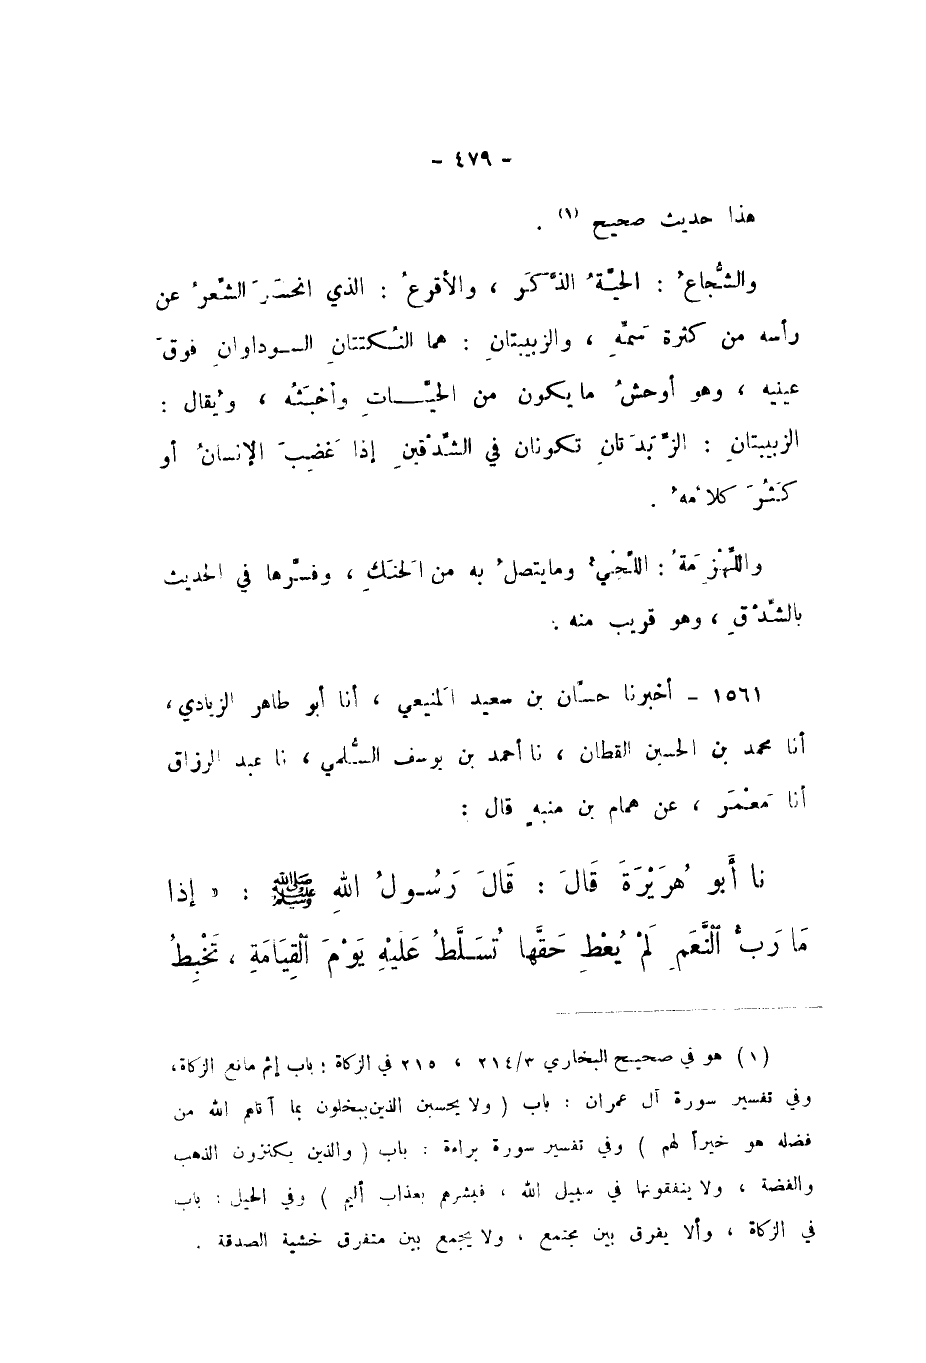 - ٤٧٩ -
هذا حديث صحيح (١) .
والشُّجاعُ : الحيَّةُ الذَّكَر ، والأقرعُ : الذي انحسَرَ الشَّعرُ عن
رأسه من كثرة سَمِّهِ ، والزبيبتانِ : هما النُكتتانِ السوداوانِ فوقَ
عينيه ، وهو أوحشُ ما يكون من الحيَّاتِ وأخبَثُه ، ويُقال :
الزبيبتانِ : الزَّبَدَتانِ تكونان في الشِّدْقينِ إذا غَضِبَ الإنسانُ أو
كَثُرَ كلامُه .
واللِّهْزِمَةُ : اللَّحْيُ وما يتصلُ به من الحَنَكِ ، وفسَّرها في الحديث
بالشِّدْقِ ، وهو قريب منه .
١٥٦١ - أخبرنا حسّان بن سعيد المَنيعي ، أنا أبو طاهر الزيادي ،
أنا محمد بن الحسين القطان ، نا أحمد بن يوسف السُّلمي ، نا عبد الرزاق
أنا مَعْمَر ، عن همام بن منبهٍ قال :
نا أَبو هُرَيْرَةَ قَالَ : قَالَ رَسُولُ اللهِ ﷺ : « إذا
مَا رَبُّ ٱلنَّعَمِ لَمْ يُعْطِ حَقَّها تُسَلَّطُ عَلَيْهِ يَوْمَ ٱلْقِيَامَةِ ، تَخْبِطُ
(١) هو في صحيح البخاري ٢١٤/٣ ، ٢١٥ في الزكاة : باب إثم مانع الزكاة ،
وفي تفسير سورة آل عمران : باب ( ولا يحسبن الذين يبخلون بما آتاهم الله من
فضله هو خيراً لهم ) وفي تفسير سورة براءة : باب ( والذين يكنزون الذهب
والفضة ، ولا ينفقونها في سبيل الله ، فبشرهم بعذاب أليم ) وفي الحيل : باب
في الزكاة ، وألا يفرق بين مجتمع ، ولا يجمع بين متفرق خشية الصدقة .